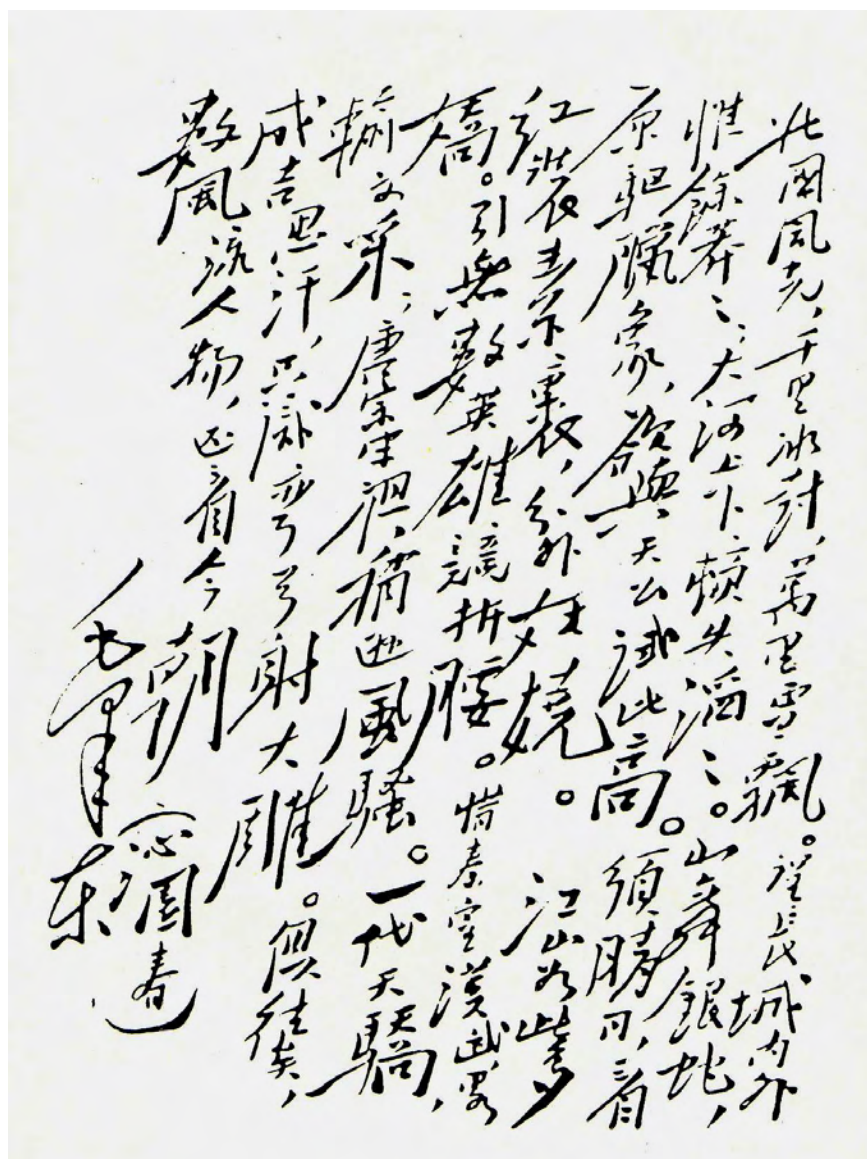 北國風光,千里冰封,萬里雪飄。望長城內外
惟餘莽〻;大河上下,頓失滔〻。山舞銀蛇,
原驱臘象,欲與天公試比高。須晴日,看
红裝素裹,分外妖嬈。江山如此多
嬌。引無數英雄競折腰。惜秦皇漢武,畧
輸文采;唐宗宋祖,稍遜風騷。一代天驕,
成吉思汗,只識彎弓射大雕。俱往矣,
數風流人物,还看今朝
沁園春
毛澤东